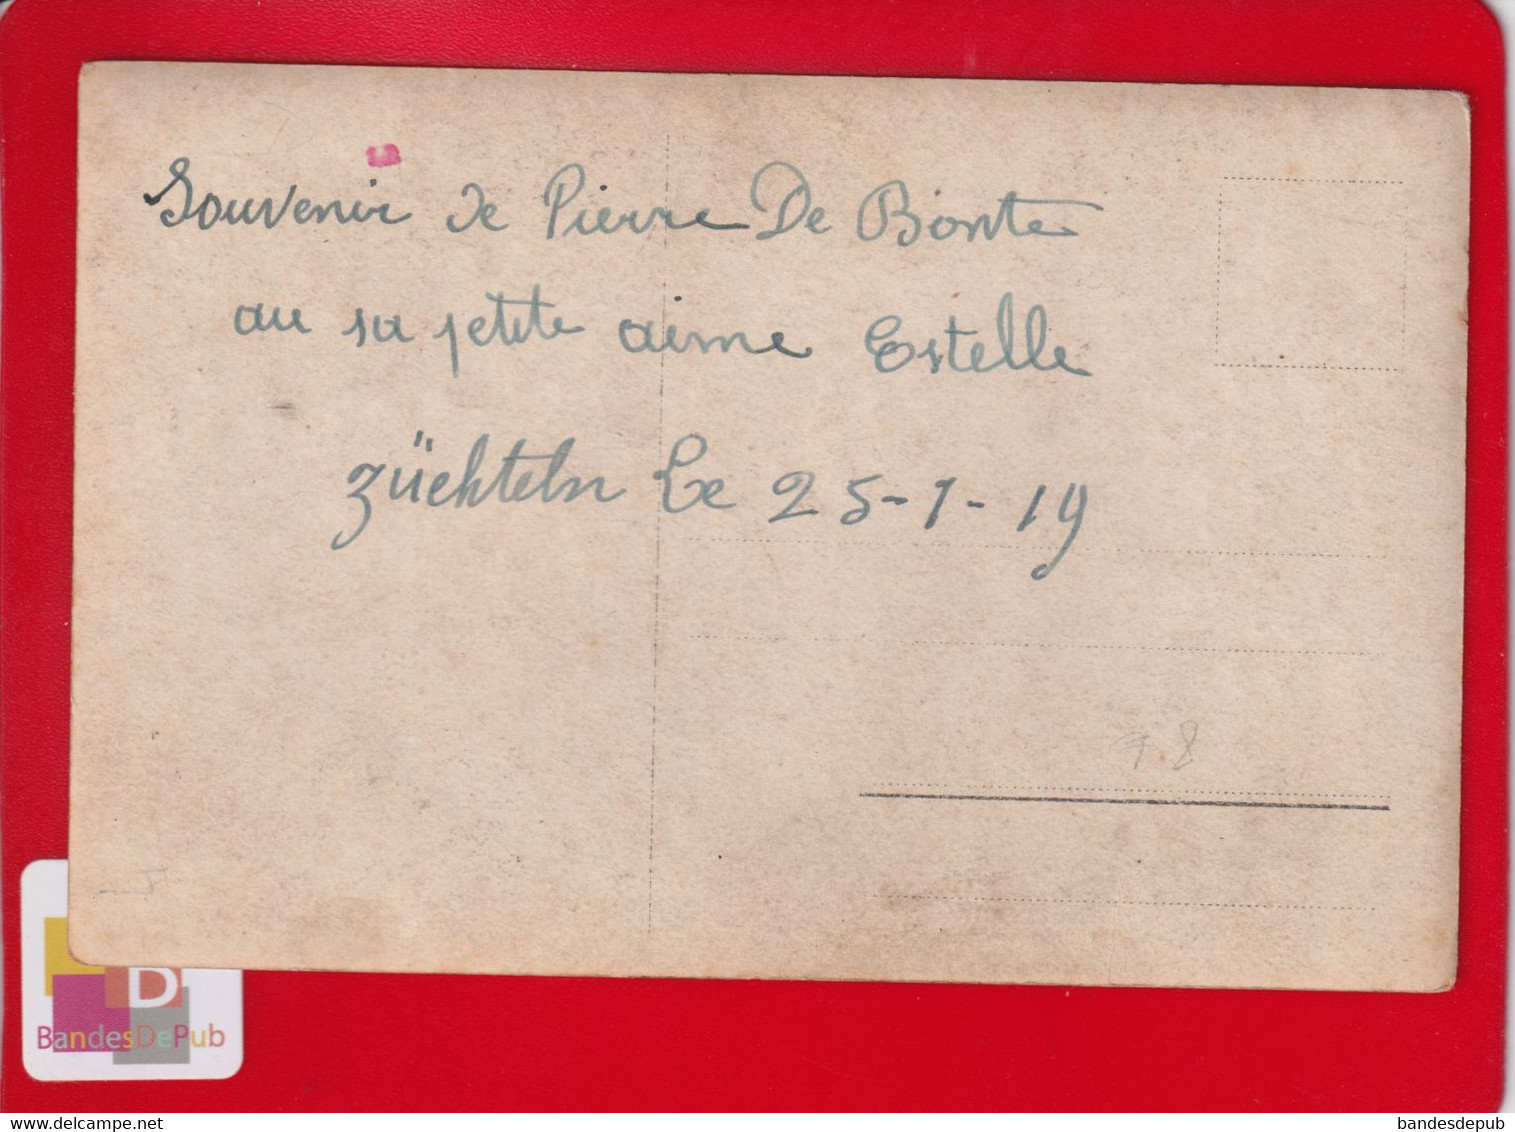 Souvenir de Pierre De Bonte
au sa petite aime Estelle
züchteln Le 25-1-19
78
D
BandesDePub
www.delcampe.net
bandesdepub